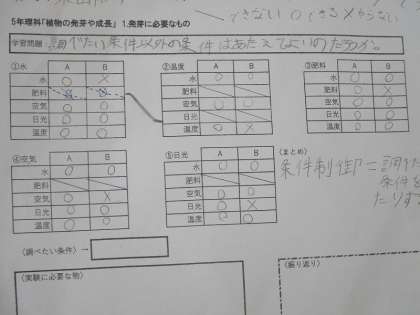 できない ○できる ×やらない
5年理科「植物の発芽や成長」 1.発芽に必要なもの
学習問題 調べたい条件以外の条件はあたえてよいのだろうか。
①水 A B
水 ○ ×
肥料
空気 ○ ○
日光 ○ ○
温度 ○ ○
②温度 A B
水 ○ ○
肥料
空気 ○ ○
日光
温度 ○ ×
③肥料 A B
水 ○ ○
肥料 ○ ×
空気 ○ ○
日光 ○ ○
温度 ○ ○
④空気 A B
水 ○ ○
肥料
空気 ○ ×
日光 ○ ○
温度 ○ ○
⑤日光 A B
水 ○ ○
肥料
空気 ○ ○
日光 ○ ×
温度 ○ ○
(まとめ)
条件制御=調べた
条件を
たりす
(調べたい条件)→
(実験に必要な物)
(振り返り)